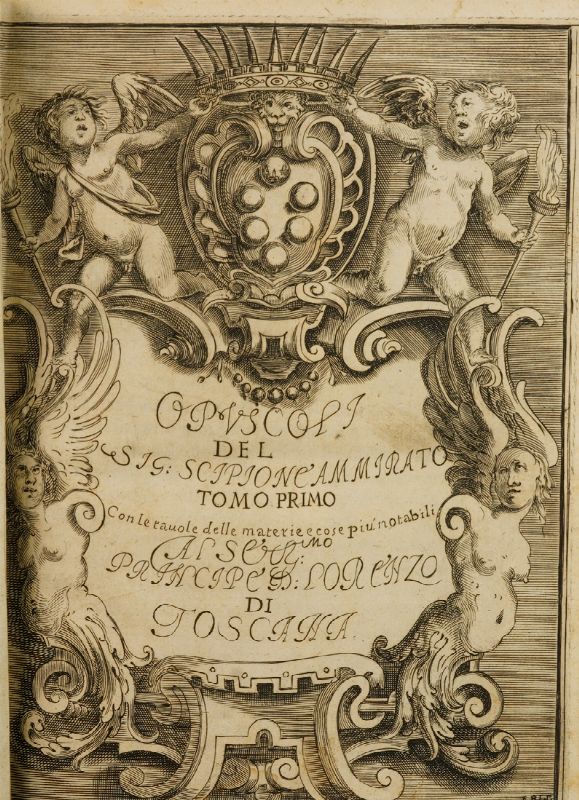 OPVSCOLI
DEL
SIG: SCIPIONE AMMIRATO
TOMO PRIMO
Con le tauole delle materie e cose più notabili
AL SER.MO
PRINCIPE D: LORENZO
DI
TOSCANA